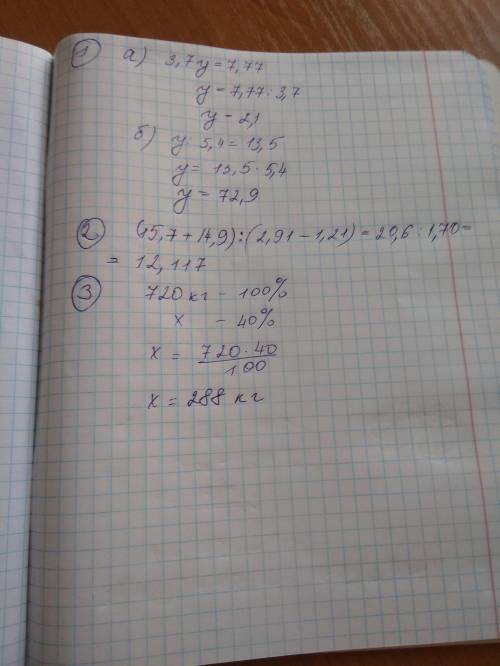 1 а) 3,7y = 7,77
y = 7,77 : 3,7
y = 2,1
б) y : 5,4 = 13,5
y = 13,5 · 5,4
y = 72,9
2 (15,7 + 14,9) : (2,91 - 1,21) = 20,6 : 1,70 =
= 12,117
3 720 кг - 100%
x - 40%
x = 720 · 40 / 100
x = 288 кг